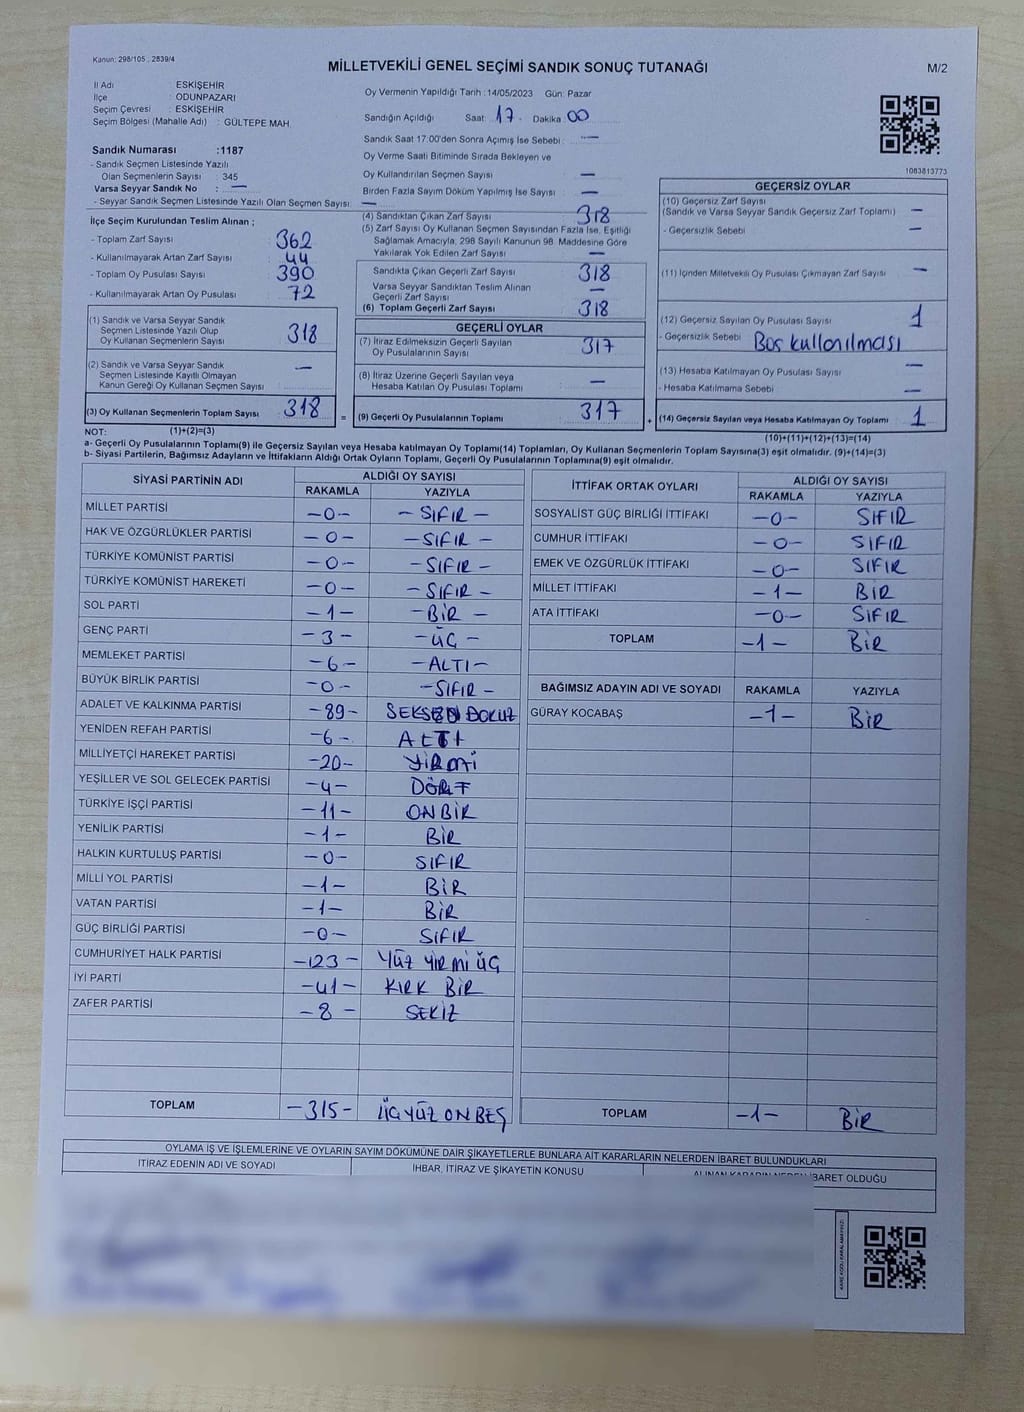 Kanun: 298/105 , 2839/4
MİLLETVEKİLİ GENEL SEÇİMİ SANDIK SONUÇ TUTANAĞI
M/2
İl Adı : ESKİŞEHİR
İlçe : ODUNPAZARI
Seçim Çevresi : ESKİŞEHİR
Seçim Bölgesi (Mahalle Adı) : GÜLTEPE MAH.
Oy Vermenin Yapıldığı Tarih :14/05/2023 Gün: Pazar
Sandığın Açıldığı Saat: 17 - Dakika: 00
Sandık Saat 17:00'den Sonra Açımış İse Sebebi : —
Oy Verme Saati Bitiminde Sırada Bekleyen ve
Oy Kullandırılan Seçmen Sayısı —
Birden Fazla Sayım Döküm Yapılmış İse Sayısı —
1083813773
Sandık Numarası :1187
- Sandık Seçmen Listesinde Yazılı
Olan Seçmenlerin Sayısı : 345
Varsa Seyyar Sandık No : —
- Seyyar Sandık Seçmen Listesinde Yazılı Olan Seçmen Sayısı: —
İlçe Seçim Kurulundan Teslim Alınan ;
- Toplam Zarf Sayısı 362
- Kullanılmayarak Artan Zarf Sayısı 44
- Toplam Oy Pusulası Sayısı 390
- Kullanılmayarak Artan Oy Pusulası 72
(1) Sandık ve Varsa Seyyar Sandık
Seçmen Listesinde Yazılı Olup
Oy Kullanan Seçmenlerin Sayısı 318
(2) Sandık ve Varsa Seyyar Sandık
Seçmen Listesinde Kayıtlı Olmayan
Kanun Gereği Oy Kullanan Seçmen Sayısı —
(3) Oy Kullanan Seçmenlerin Toplam Sayısı 318 =
(4) Sandıktan Çıkan Zarf Sayısı 318
(5) Zarf Sayısı Oy Kullanan Seçmen Sayısından Fazla İse, Eşitliği
Sağlamak Amacıyla, 298 Sayılı Kanunun 98. Maddesine Göre
Yakılarak Yok Edilen Zarf Sayısı —
Sandıkta Çıkan Geçerli Zarf Sayısı 318
Varsa Seyyar Sandıktan Teslim Alınan
Geçerli Zarf Sayısı —
(6) Toplam Geçerli Zarf Sayısı 318
GEÇERLİ OYLAR
(7) İtiraz Edilmeksizin Geçerli Sayılan
Oy Pusulalarının Sayısı 317
(8) İtiraz Üzerine Geçerli Sayılan veya
Hesaba Katılan Oy Pusulası Toplamı —
(9) Geçerli Oy Pusulalarının Toplamı 317 +
GEÇERSİZ OYLAR
(10) Geçersiz Zarf Sayısı
(Sandık ve Varsa Seyyar Sandık Geçersiz Zarf Toplamı) —
- Geçersizlik Sebebi —
(11) İçinden Milletvekili Oy Pusulası Çıkmayan Zarf Sayısı —
(12) Geçersiz Sayılan Oy Pusulası Sayısı 1
- Geçersizlik Sebebi Boş kullanılması
(13) Hesaba Katılmayan Oy Pusulası Sayısı —
- Hesaba Katılmama Sebebi —
(14) Geçersiz Sayılan veya Hesaba Katılmayan Oy Toplamı 1
NOT: (1)+(2)=(3) (10)+(11)+(12)+(13)=(14)
a- Geçerli Oy Pusulalarının Toplamı(9) ile Geçersiz Sayılan veya Hesaba katılmayan Oy Toplamı(14) Toplamları, Oy Kullanan Seçmenlerin Toplam Sayısına(3) eşit olmalıdır. (9)+(14)=(3)
b- Siyasi Partilerin, Bağımsız Adayların ve İttifakların Aldığı Ortak Oyların Toplamı, Geçerli Oy Pusulalarının Toplamına(9) eşit olmalıdır.
SİYASİ PARTİNİN ADI ALDIĞI OY SAYISI
RAKAMLA YAZIYLA
MİLLET PARTİSİ -0- - SIFIR -
HAK VE ÖZGÜRLÜKLER PARTİSİ -0- - SIFIR -
TÜRKİYE KOMÜNİST PARTİSİ -0- - SIFIR -
TÜRKİYE KOMÜNİST HAREKETİ -0- - SIFIR -
SOL PARTİ -1- - BİR -
GENÇ PARTİ -3- - ÜÇ -
MEMLEKET PARTİSİ -6- - ALTI -
BÜYÜK BİRLİK PARTİSİ -0- - SIFIR -
ADALET VE KALKINMA PARTİSİ -89- SEKSEN DOKUZ
YENİDEN REFAH PARTİSİ -6- ALTI
MİLLİYETÇİ HAREKET PARTİSİ -20- YİRMİ
YEŞİLLER VE SOL GELECEK PARTİSİ -4- DÖRT
TÜRKİYE İŞÇİ PARTİSİ -11- ONBİR
YENİLİK PARTİSİ -1- BİR
HALKIN KURTULUŞ PARTİSİ -0- SIFIR
MİLLİ YOL PARTİSİ -1- BİR
VATAN PARTİSİ -1- BİR
GÜÇ BİRLİĞİ PARTİSİ -0- SIFIR
CUMHURİYET HALK PARTİSİ -123- YÜZ YİRMİ ÜÇ
İYİ PARTİ -41- KIRK BİR
ZAFER PARTİSİ -8- SEKİZ
TOPLAM -315- ÜÇ YÜZ ON BEŞ
İTTİFAK ORTAK OYLARI ALDIĞI OY SAYISI
RAKAMLA YAZIYLA
SOSYALİST GÜÇ BİRLİĞİ İTTİFAKI -0- SIFIR
CUMHUR İTTİFAKI -0- SIFIR
EMEK VE ÖZGÜRLÜK İTTİFAKI -0- SIFIR
MİLLET İTTİFAKI -1- BİR
ATA İTTİFAKI -0- SIFIR
TOPLAM -1- BİR
BAĞIMSIZ ADAYIN ADI VE SOYADI RAKAMLA YAZIYLA
GÜRAY KOCABAŞ -1- BİR
TOPLAM -1- BİR
OYLAMA İŞ VE İŞLEMLERİNE VE OYLARIN SAYIM DÖKÜMÜNE DAİR ŞİKAYETLERLE BUNLARA AİT KARARLARIN NELERDEN İBARET BULUNDUKLARI
İTİRAZ EDENİN ADI VE SOYADI İHBAR, İTİRAZ VE ŞİKAYETİN KONUSU ALINAN KARARIN NEDEN İBARET OLDUĞU